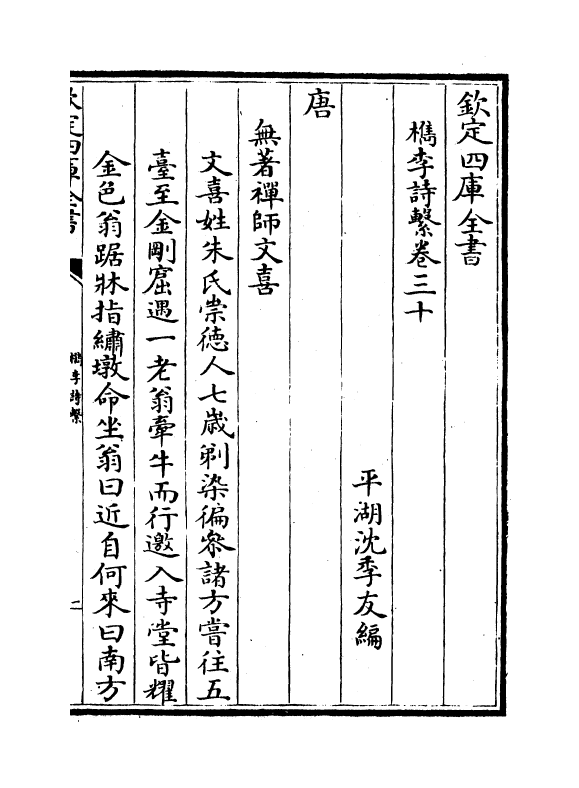 欽定四庫全書
檇李詩繫卷三十
平湖沈季友編
唐
無著禪師文喜
文喜姓朱氏崇徳人七嵗剃染徧叅諸方嘗往五
臺至金剛窟遇一老翁牽牛而行邀入寺堂皆耀
金色翁踞牀指繡墩命坐翁曰近自何來曰南方
欽定四庫全書
檇李詩繫